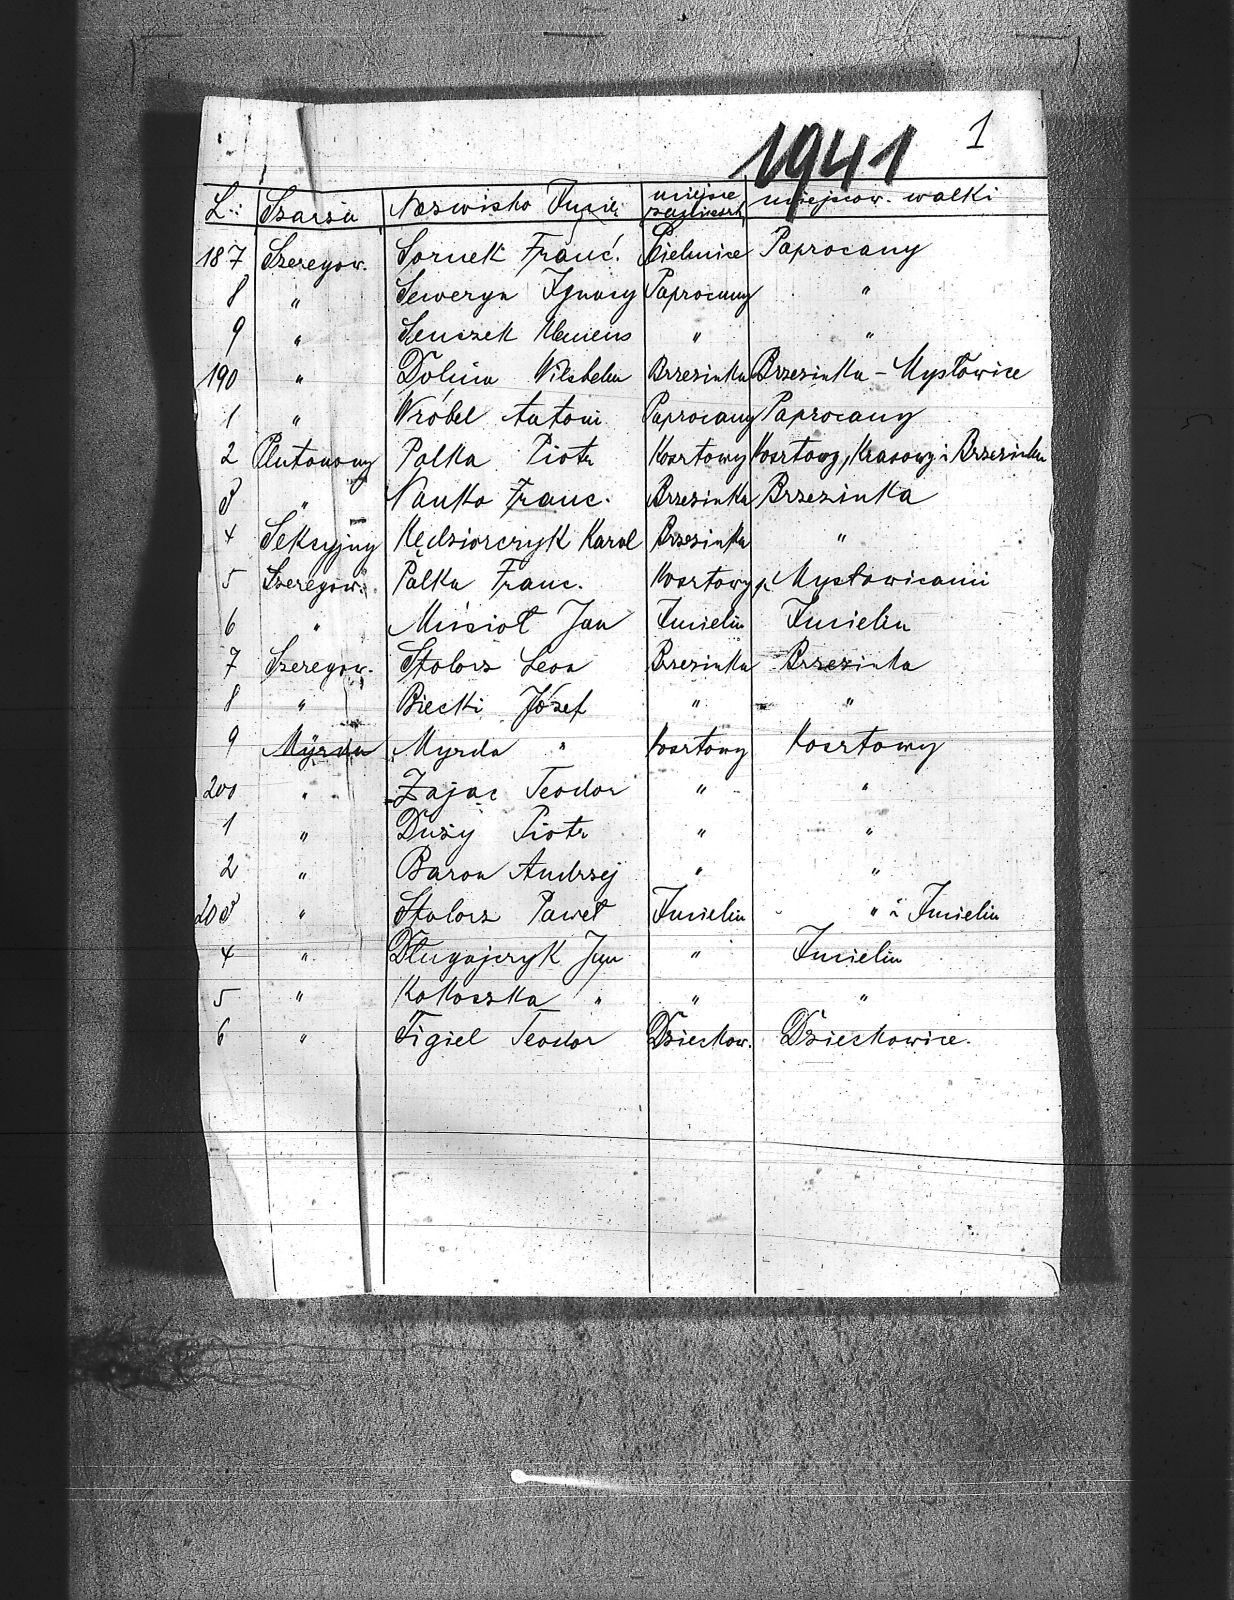 1941 1
L.: Szarża Nazwisko Imię miejsce zamieszk. miejscow. walki
187 Szeregow. Sornek Franć. Cielmice Paprocany
8 " Seweryn Ignacy Paprocany "
9 " Senczek Klemens " "
190 " Dolina Wilchelm Brzezinka Brzezinka - Mysłowice
1 " Wróbel Antoni Paprocany Paprocany
2 Plutonowy Palka Piotr Kosztowy Kosztowy, Krasowy i Brzezinka
3 " Nauka Franc. Brzezinka Brzezinka
4 Sekcyjny Kędziorczyk Karol Brzezinka "
5 Szeregow. Palka Franc. Kosztowy p. Mysłowicami
6 " Misioł Jan Imielin Imielin
7 Szeregow. Stolorz Leon Brezinka Brzezinka
8 " Biecki Józef " "
9 Myrda Myrda " Kosztowy Kosztowy
200 " Zając Teodor " "
1 " Duży Piotr " "
2 " Baron Andrzej " "
203 " Stolorz Paweł Imielin " i Imielin
4 " Długajczyk Jan " Imielin
5 " Kokoszka " " "
6 " Figiel Teodor Dzieckow. Dzieckowice.